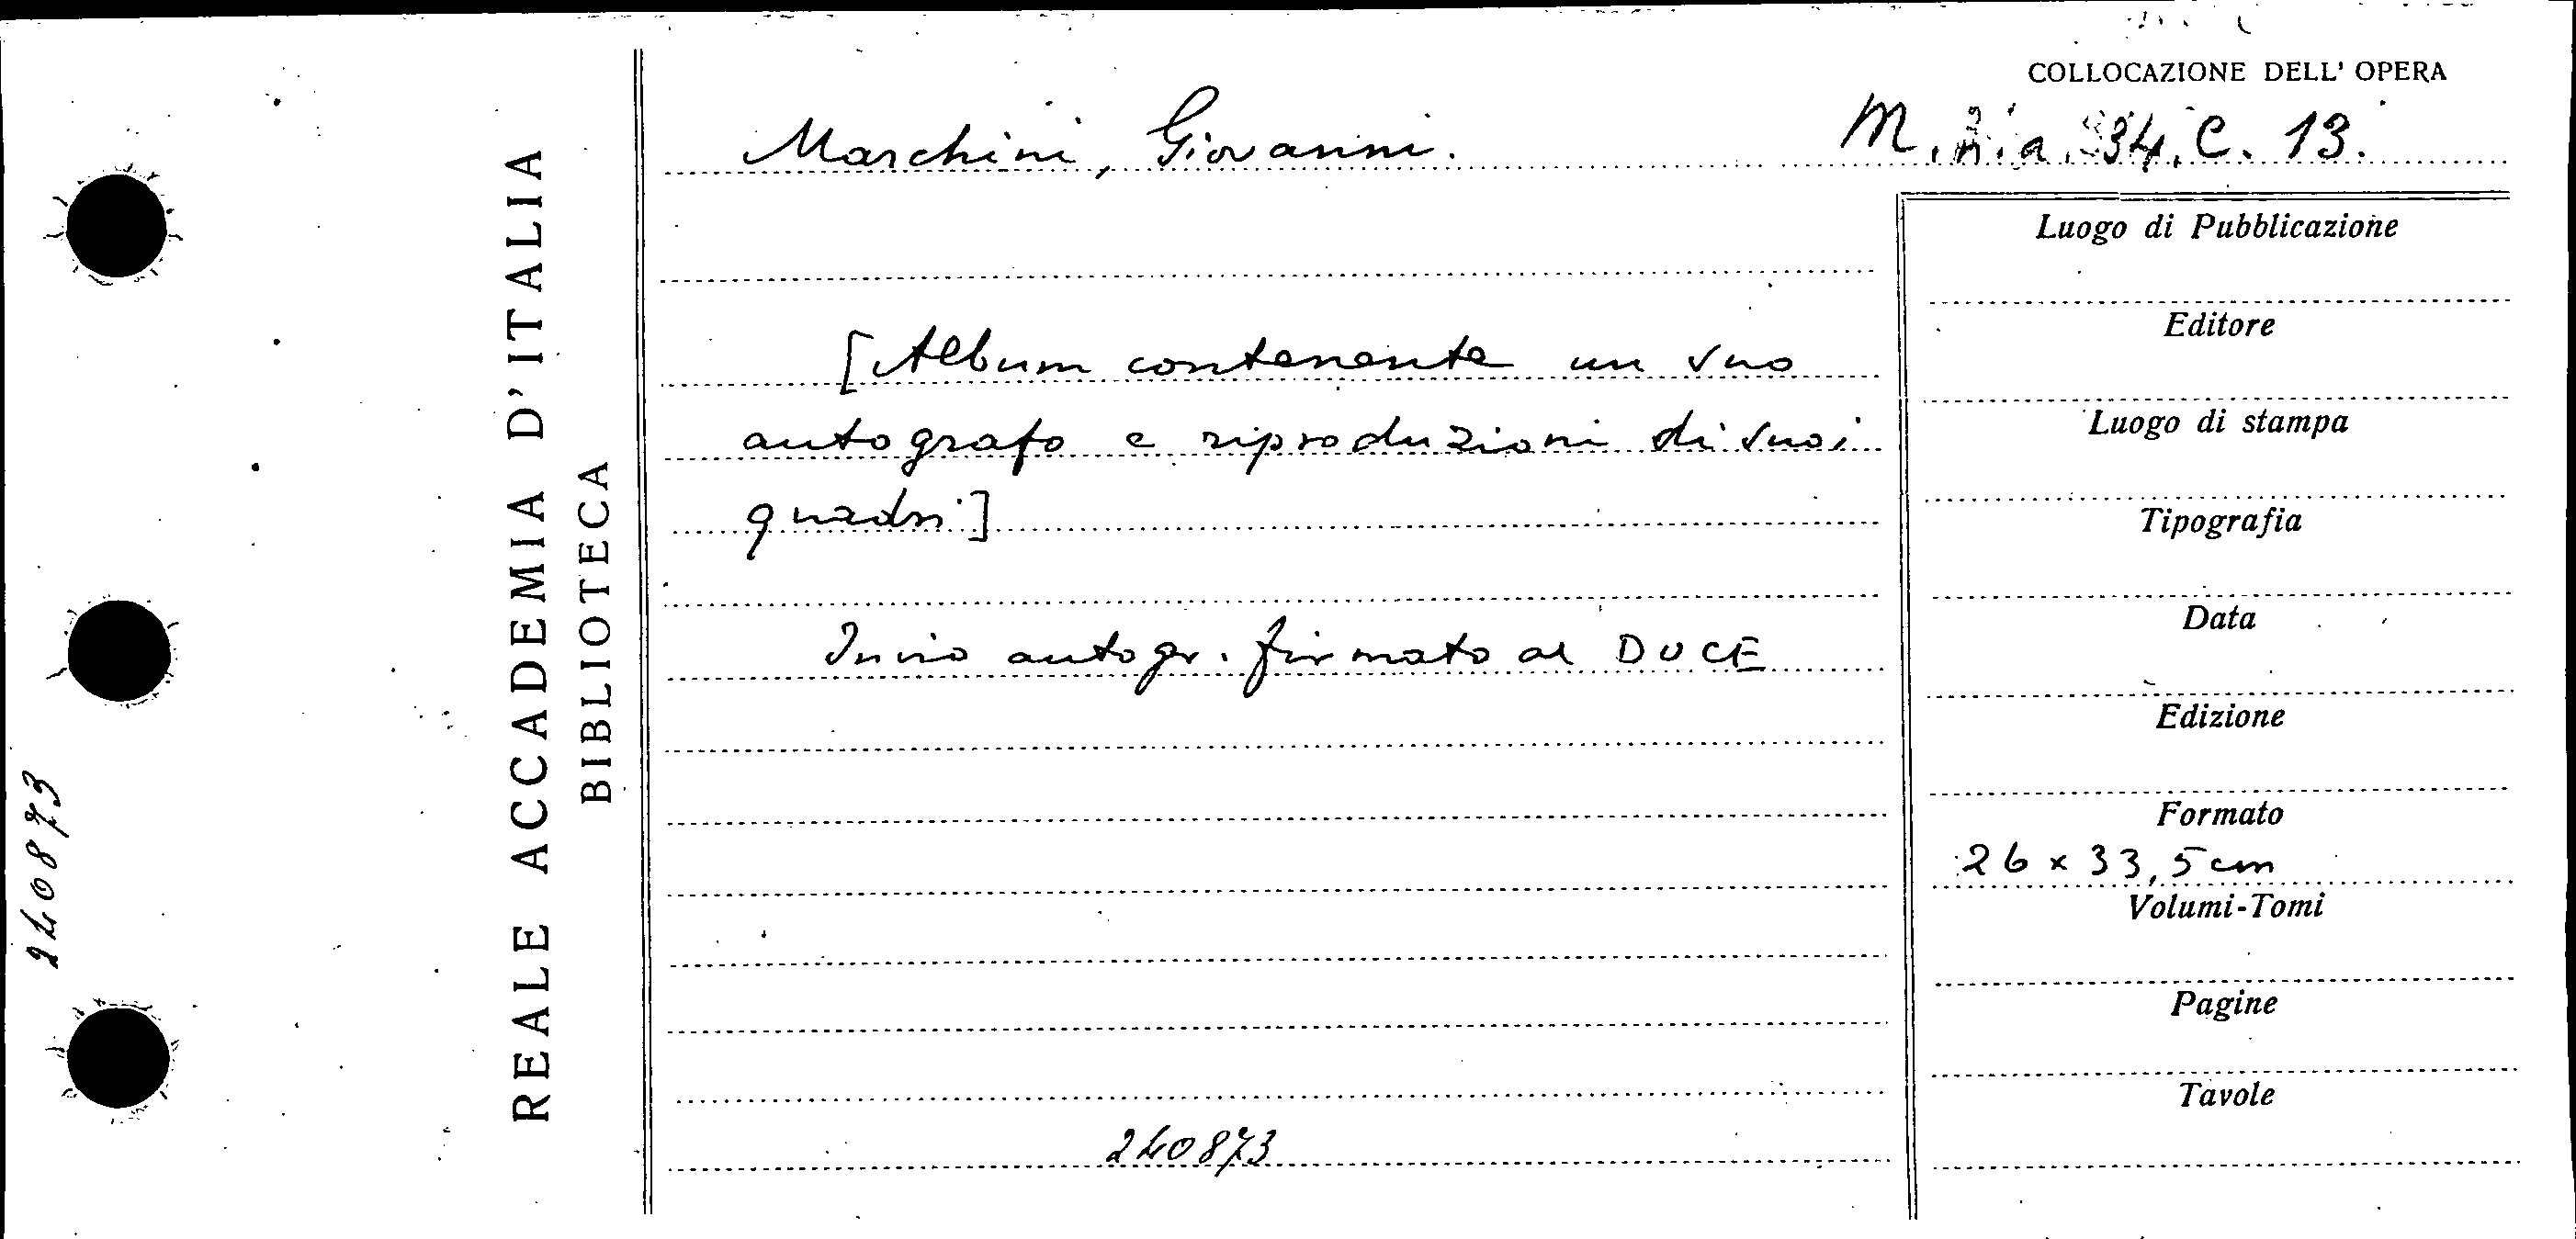 COLLOCAZIONE DELL' OPERA
Marchini, Giovanni.
M. a. 34. C. 13.
REALE ACCADEMIA D'ITALIA
BIBLIOTECA
[Album contenente un suo
autografo e riproduzioni di suoi
quadri]
Invio autogr. firmato al DUCE
240873
Luogo di Pubblicazione
Editore
Luogo di stampa
Tipografia
Data
Edizione
Formato
26 x 33,5 cm
Volumi-Tomi
Pagine
Tavole
240873